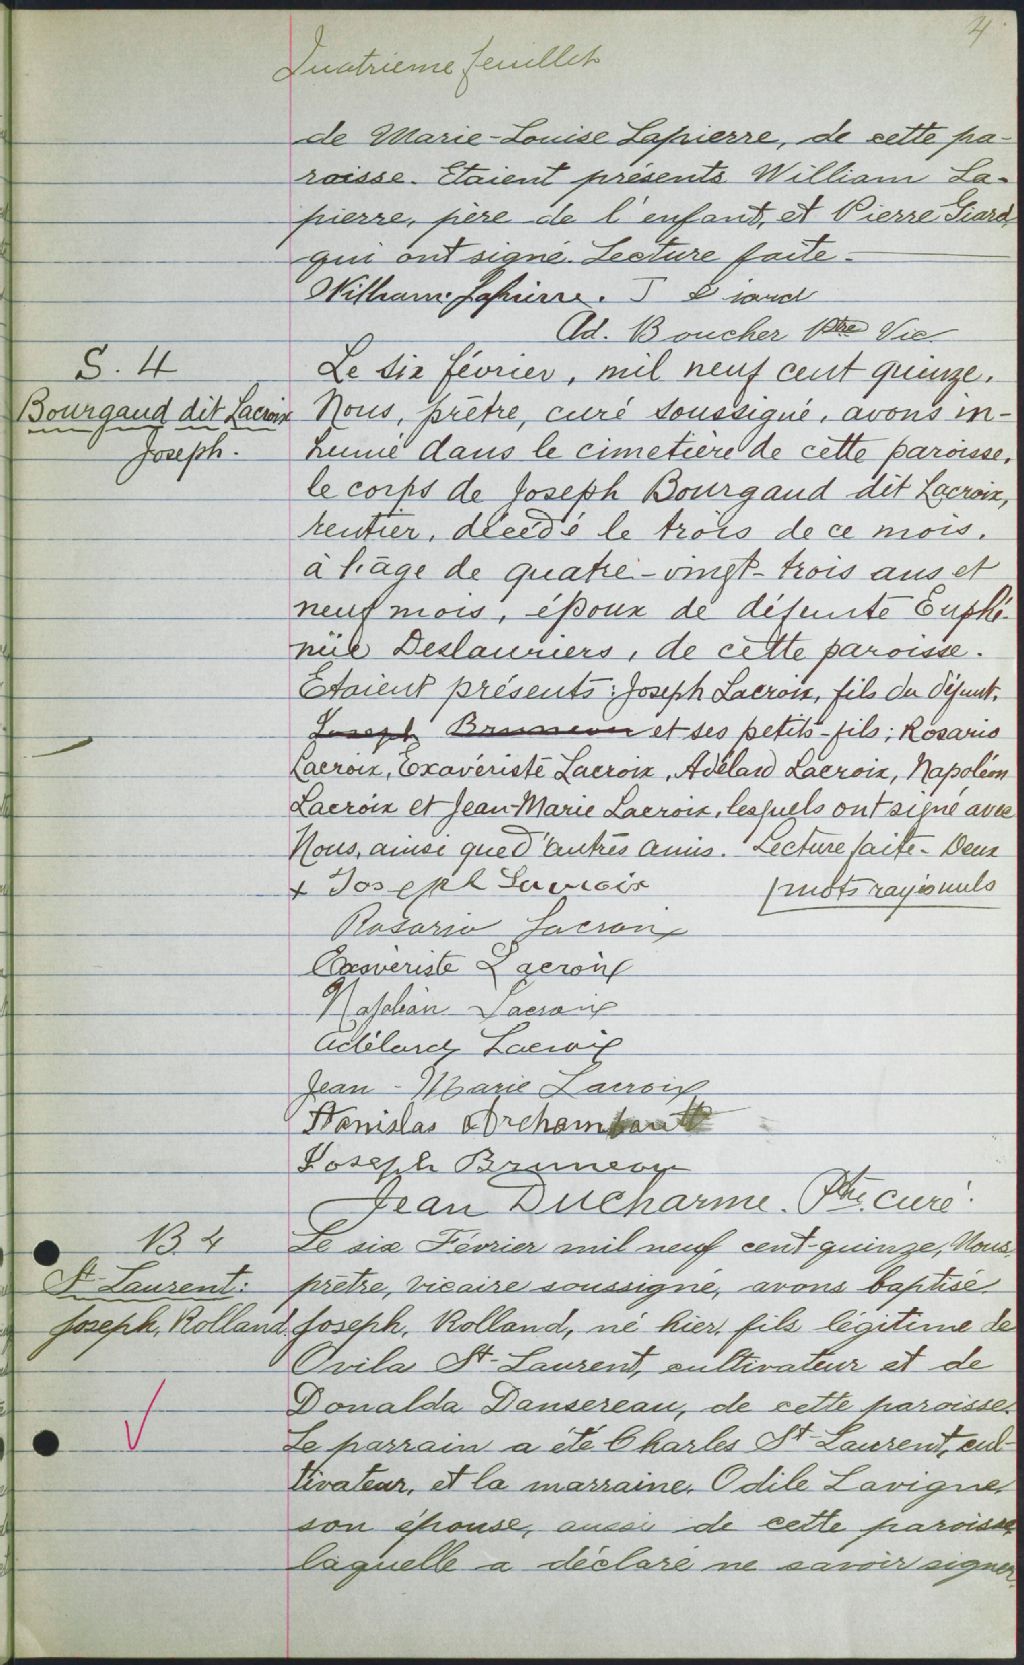 4
Quatrieme feuillet
de Marie-Louise Lapierre, de cette pa-
roisse. Etaient présents William La-
pierre, père de l'enfant, et Pierre Giard,
qui ont signé. Lecture faite.
William Lapierre. J Giard
Ad. Boucher Ptre Vic.
S. 4
Bourgaud dit Lacroix
Joseph.
Le six février, mil neuf cent quinze,
Nous, prêtre, curé soussigné, avons in-
humé dans le cimetière de cette paroisse,
le corps de Joseph Bourgaud dit Lacroix,
rentier, décédé le trois de ce mois,
à l'âge de quatre-vingt-trois ans et
neuf mois, époux de défunte Euphé-
mie Deslauriers, de cette paroisse.
Etaient présents: Joseph Lacroix, fils du défunt.
Joseph Bruneau et ses petits-fils; Rosario
Lacroix, Exavériste Lacroix, Adélard Lacroix, Napoléon
Lacroix et Jean-Marie Lacroix, lesquels ont signé avec
Nous, ainsi que d'autres amis. Lecture faite. Deux
mots rayés nuls
+ Joseph Lacroix
Rosario Lacroix
Exavériste Lacroix
Napoléon Lacroix
Adélard Lacroix
Jean-Marie Lacroix
Stanislas Archambault
Joseph Bruneau
Jean Ducharme. Ptre, curé.
B. 4
St-Laurent:
Joseph, Rolland.
Le six Février mil neuf cent-quinze, Nous,
prêtre, vicaire soussigné, avons baptisé
Joseph, Rolland, né hier, fils légitime de
Ovila St-Laurent, cultivateur et de
Donalda Dansereau, de cette paroisse.
Le parrain a été Charles St-Laurent, cul-
tivateur, et la marraine, Odile Lavigne,
son épouse, aussi de cette paroisse,
laquelle a déclaré ne savoir signer.